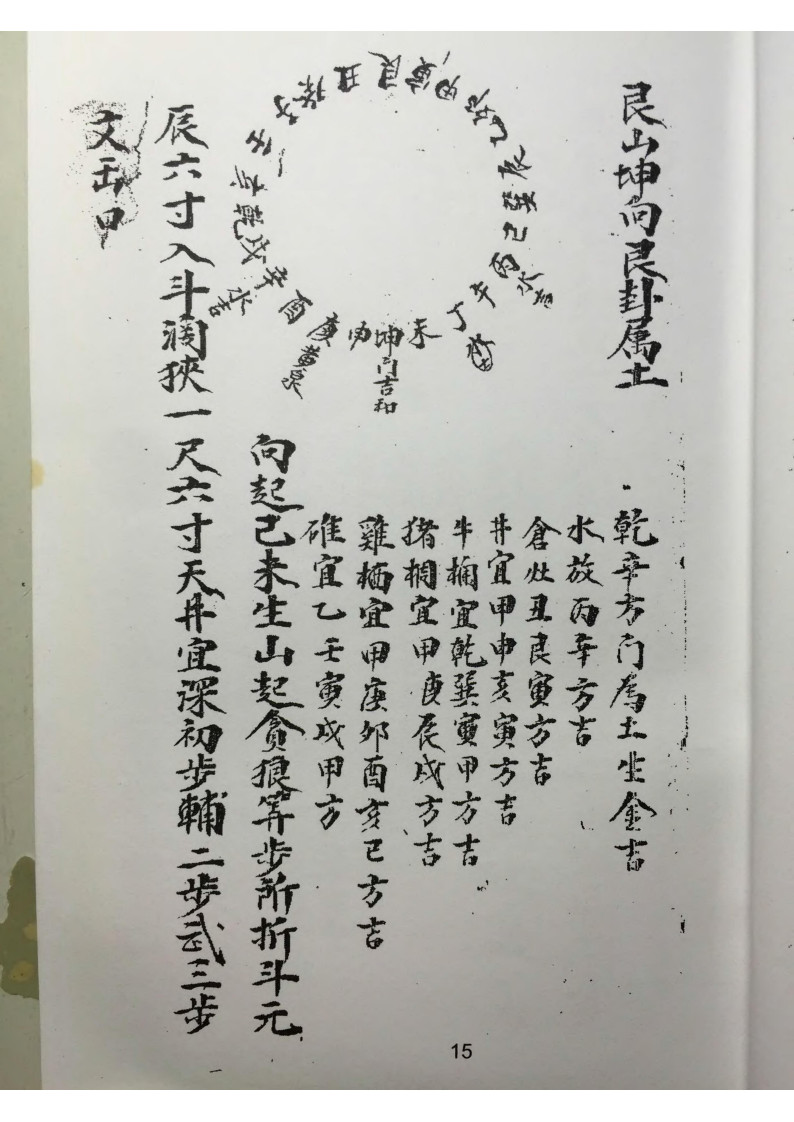 艮山坤向艮卦属土
乾辛方门属土生金吉
水放丙辛方吉
倉灶丑艮寅方吉
井宜甲申亥寅方吉
牛椆宜乾巽寅甲方吉
猪椆宜甲庚辰戌方吉
雞栖宜甲庚卯酉亥巳方吉
碓宜乙壬寅戌甲方
艮寅甲卯乙辰巽巳丙水吉
丁未坤门吉和
申庚黄泉
酉辛水吉
戌乾亥壬子癸丑
向起己未生山起貪狼筭步所折斗元
辰六寸入斗濶狹一尺六寸天井宜深初步輔二步武三步
文五甲
15